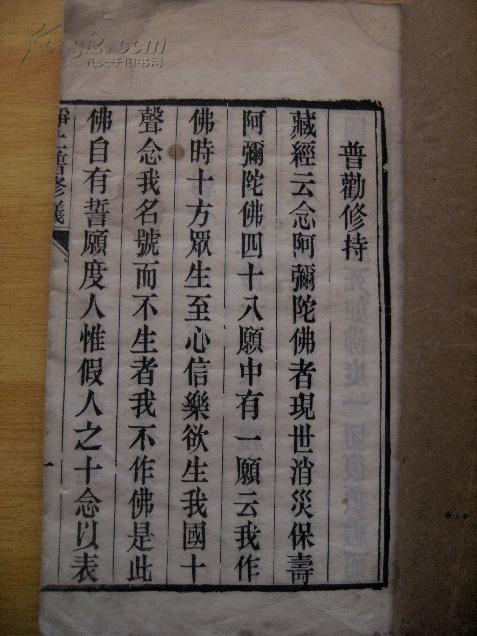 普勸修持
藏經云念阿彌陀佛者現世消災保壽
阿彌陀佛四十八願中有一願云我作
佛時十方眾生至心信樂欲生我國十
聲念我名號而不生者我不作佛是此
佛自有誓願度人惟假人之十念以表
一
孔夫子旧书网